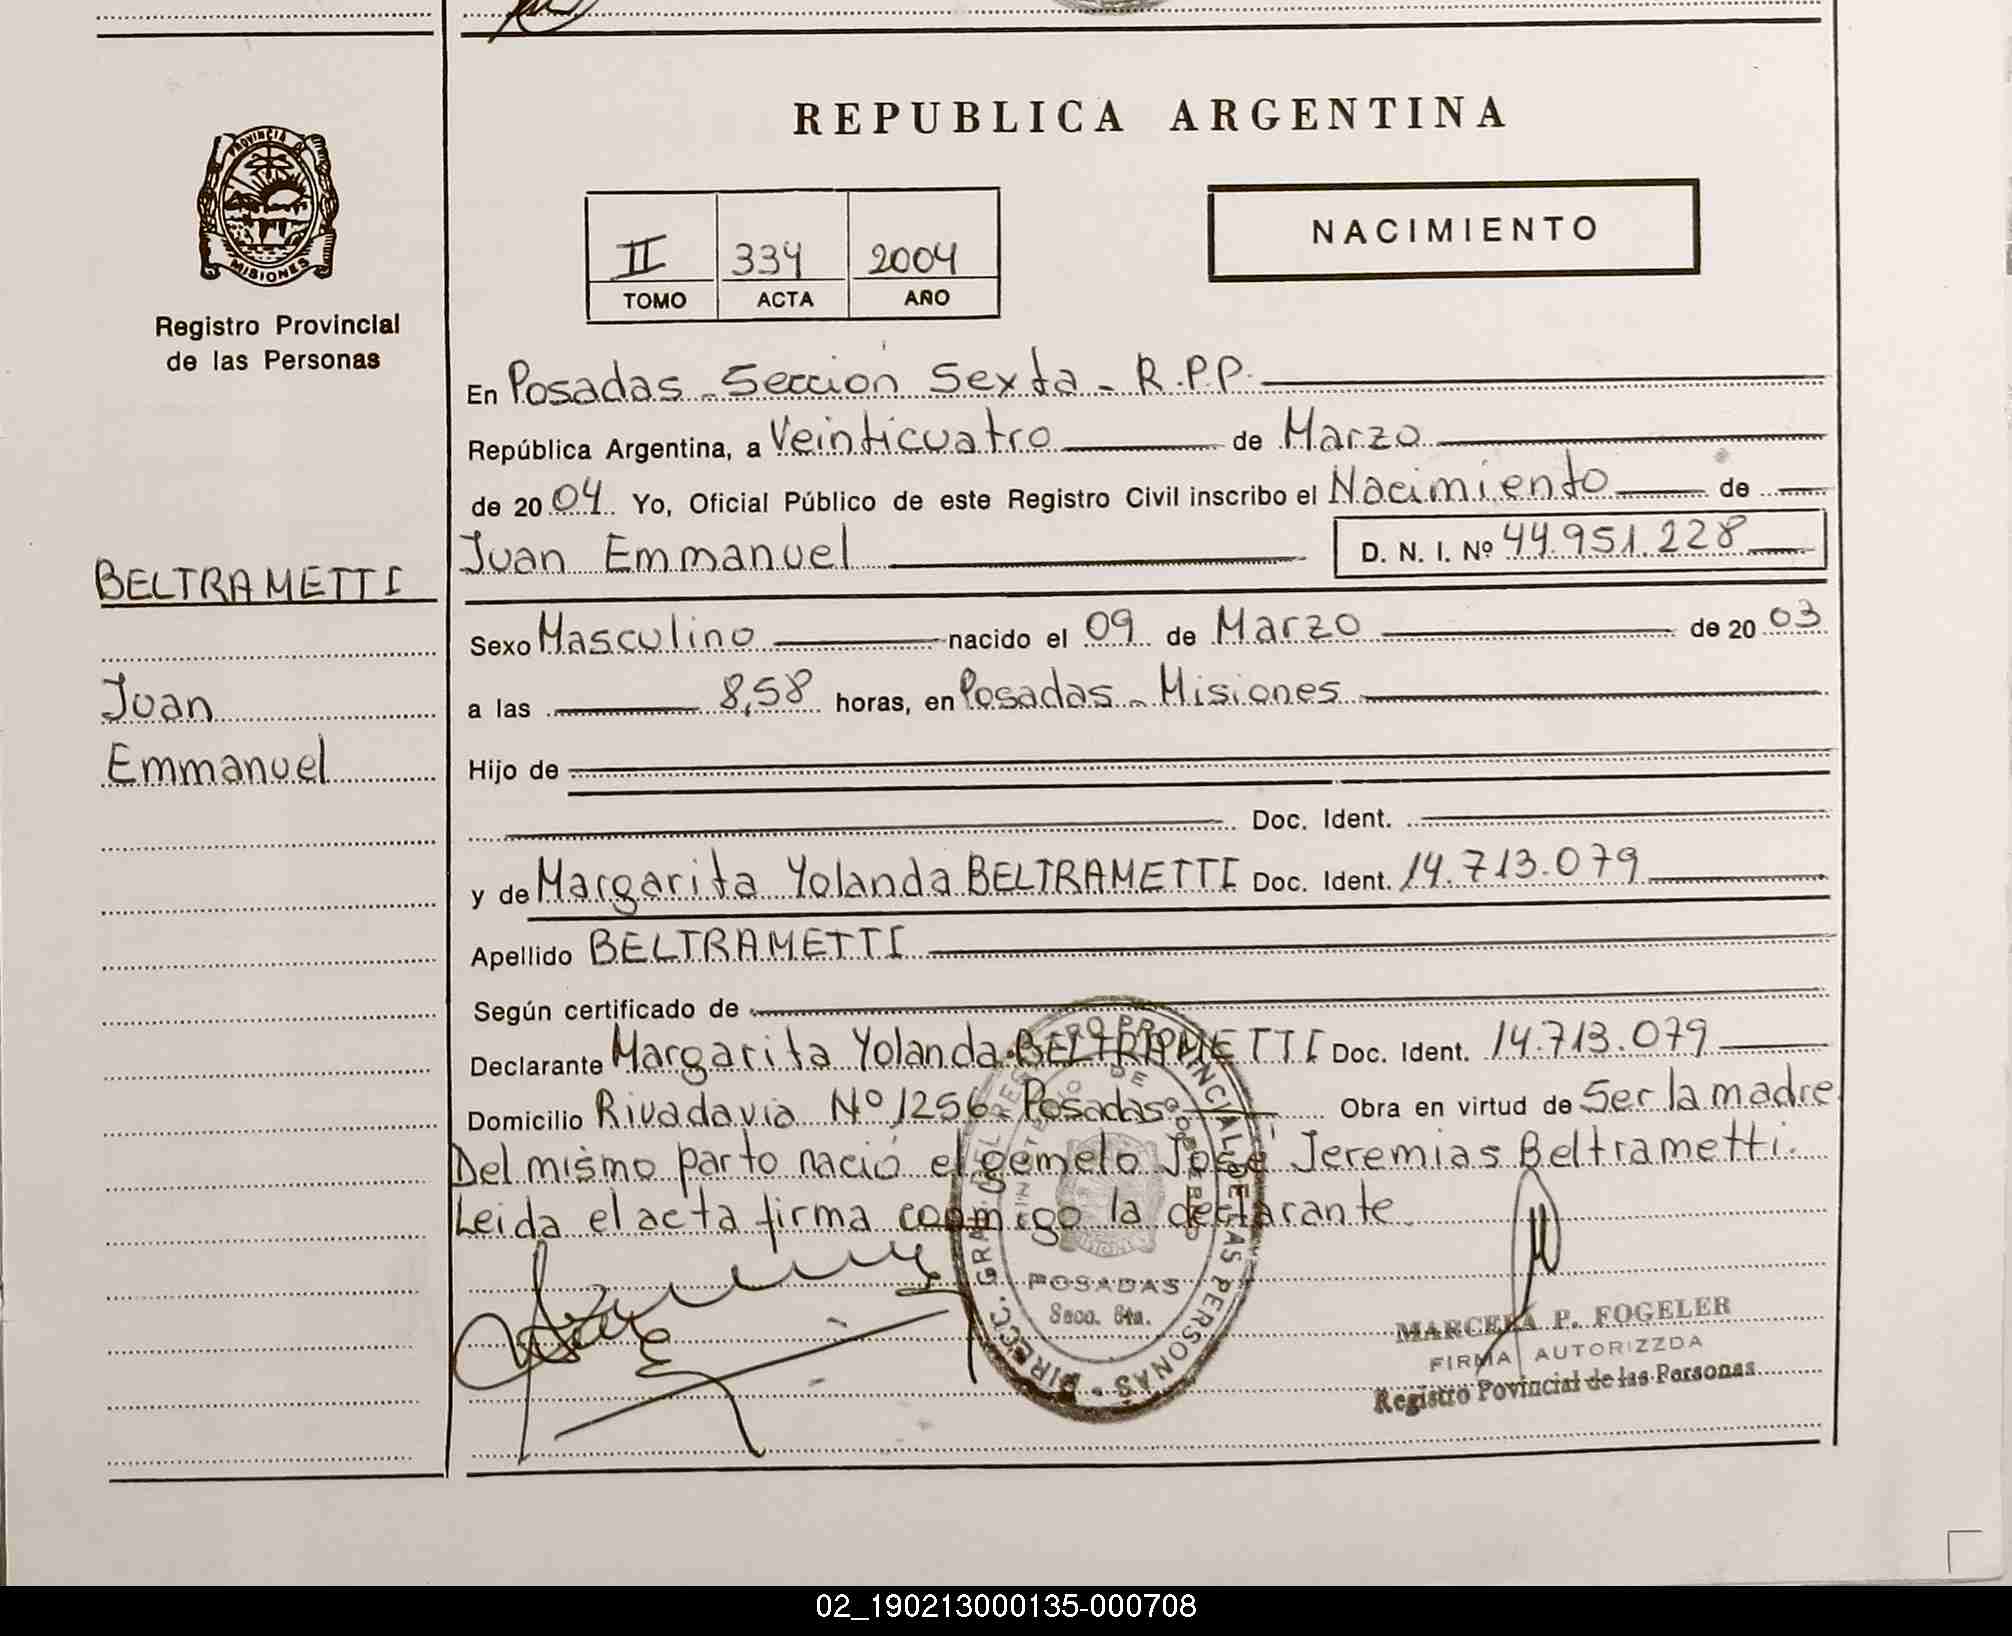 REPUBLICA ARGENTINA
PROVINCIA DE MISIONES
Registro Provincial
de las Personas
II 334 2004
TOMO ACTA AÑO
NACIMIENTO
BELTRAMETTI
Juan
Emmanuel
En Posadas - Sección Sexta - R.P.P.
República Argentina, a Veinticuatro de Marzo
de 2004 Yo, Oficial Público de este Registro Civil inscribo el Nacimiento de
Juan Emmanuel D. N. I. Nº 44.951.228
Sexo Masculino nacido el 09 de Marzo de 2003
a las 8,58 horas, en Posadas - Misiones
Hijo de
Doc. Ident.
y de Margarita Yolanda BELTRAMETTI Doc. Ident. 14.713.079
Apellido BELTRAMETTI
Según certificado de
Declarante Margarita Yolanda BELTRAMETTI Doc. Ident. 14.713.079
Domicilio Rivadavia Nº 1256 - Posadas Obra en virtud de Ser la madre
Del mismo parto nació el gemelo José Jeremias Beltrametti.
Leida el acta firma conmigo la declarante.
DIRECC. GRAL. DEL REGISTRO PROVINCIAL DE LAS PERSONAS
POSADAS
Secc. 6ta.
MARCELA P. FOGELER
FIRMA AUTORIZZDA
Registro Povincial de las Personas
02_190213000135-000708